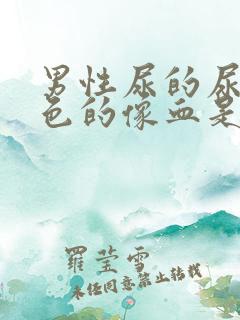 男性尿的尿
色的像血是
羅莹雪
未经同意禁止转载